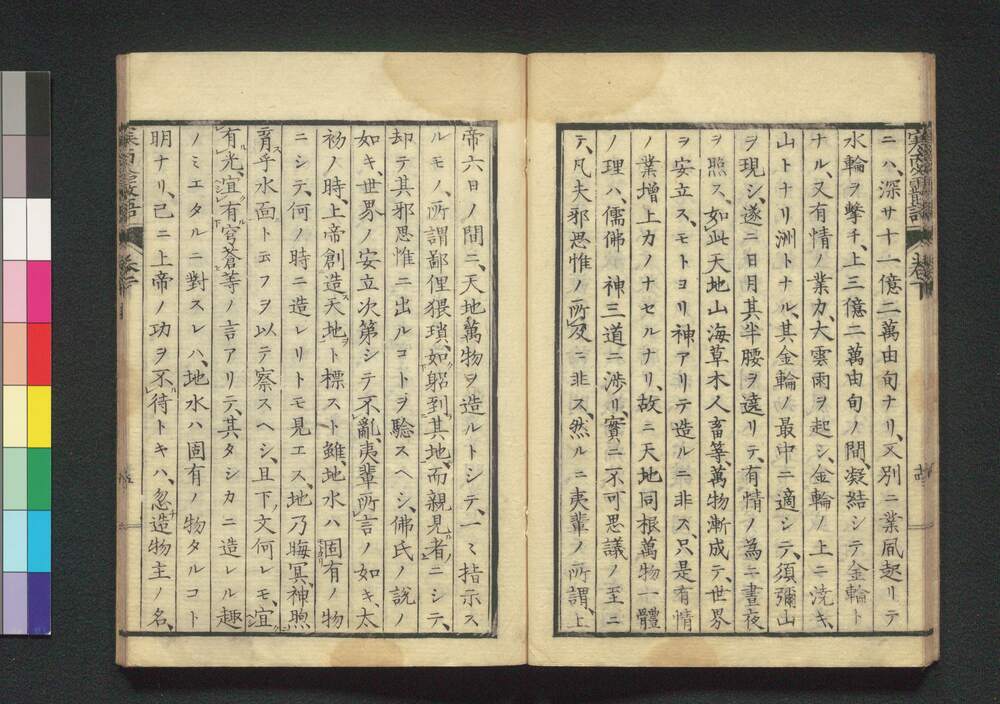 ニハ、深サ十一億二萬由旬ナリ、又別ニ業風起リテ
水輪ヲ撃チ、上三億二萬由旬ノ間、凝結シテ金輪ト
ナル、又有情ノ業力、大雲雨ヲ起シ、金輪ノ上ニ洗キ、
山トナリ洲トナル、其金輪ノ最中ニ適シテ、須彌山
ヲ現シ、遂ニ日月其半腰ヲ遶リテ、有情ノ為ニ晝夜
ヲ照ス、如此天地山海草木人畜等、萬物漸成テ、世界
ヲ安立ス、モトヨリ神アリテ造ルニ非ス、只是有情
ノ業増上カノナセルナリ、故ニ天地同根萬物一體
ノ理ハ、儒佛神三道ニ渉リ、實ニ不可思議ノ至ニ
テ、凡夫邪思惟ノ所及ニ非ス、然ルニ夷輩ノ所謂、上
帝六日ノ間ニ、天地萬物ヲ造ルトシテ、一々指示ス
ルモノ、所謂鄙俚猥瑣、如躬到其地、而親見者ニシテ、
却テ其邪思惟ニ出ルコトヲ驗スヘシ、佛氏ノ説ノ
如キ、世界ノ安立次第シテ不亂、夷輩所言ノ如キ、太
初ノ時、上帝創造天地ト標スト雖、地水ハ固有ノ物
ニシテ、何ノ時ニ造レリトモ見エス、地乃晦冥、神煦
育乎水面ト云フヲ以テ察スヘシ、且下文何レモ、宜
有光、宜有穹蒼等ノ言アリテ、其タシカニ造レル趣
ノミエタルニ對スレハ、地水ハ固有ノ物タルコト
明ナリ、已ニ上帝ノ功ヲ不待トキハ、忽造物主ノ名、